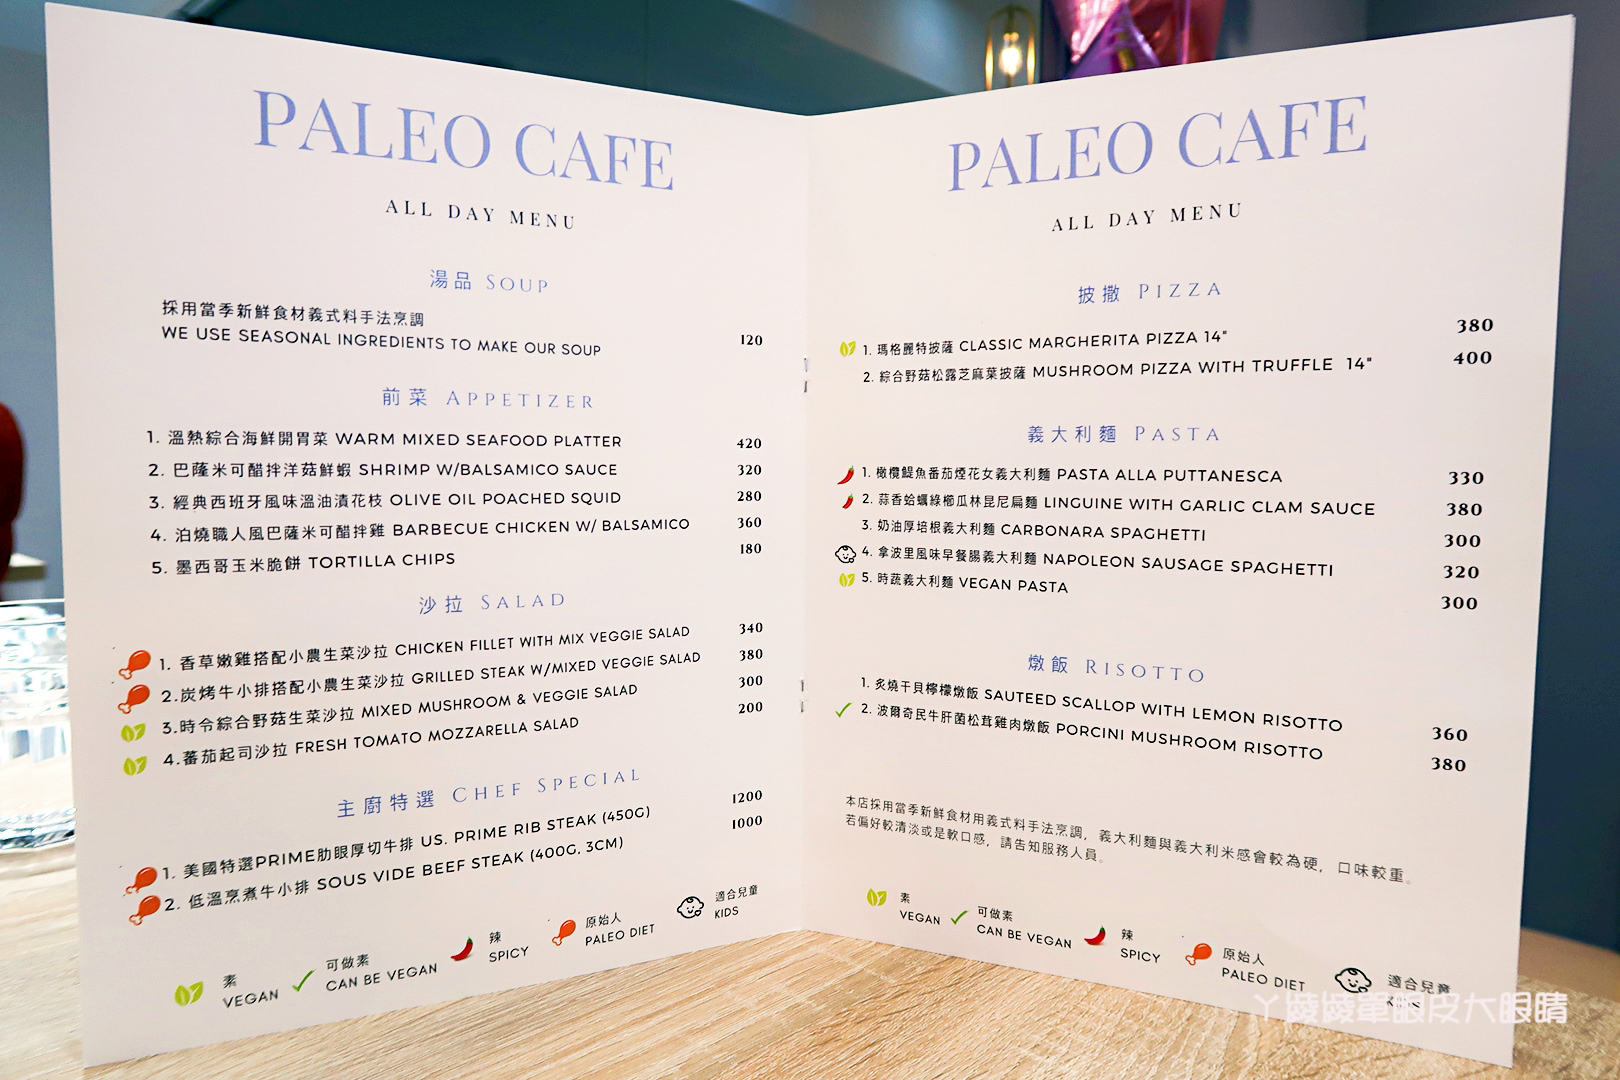 PALEO CAFE
ALL DAY MENU
湯品 SOUP
採用當季新鮮食材義式料手法烹調
WE USE SEASONAL INGREDIENTS TO MAKE OUR SOUP 120
前菜 APPETIZER
1. 溫熱綜合海鮮開胃菜 WARM MIXED SEAFOOD PLATTER 420
2. 巴薩米可醋拌洋菇鮮蝦 SHRIMP W/BALSAMICO SAUCE 320
3. 經典西班牙風味溫油漬花枝 OLIVE OIL POACHED SQUID 280
4. 泊燒職人風巴薩米可醋拌雞 BARBECUE CHICKEN W/ BALSAMICO 360
5. 墨西哥玉米脆餅 TORTILLA CHIPS 180
沙拉 SALAD
1. 香草嫩雞搭配小農生菜沙拉 CHICKEN FILLET WITH MIX VEGGIE SALAD 340
2.炭烤牛小排搭配小農生菜沙拉 GRILLED STEAK W/MIXED VEGGIE SALAD 380
3.時令綜合野菇生菜沙拉 MIXED MUSHROOM & VEGGIE SALAD 300
4.蕃茄起司沙拉 FRESH TOMATO MOZZARELLA SALAD 200
主廚特選 CHEF SPECIAL
1. 美國特選PRIME肋眼厚切牛排 US. PRIME RIB STEAK (450G) 1200
2. 低溫烹煮牛小排 SOUS VIDE BEEF STEAK (400G, 3CM) 1000
素 VEGAN
可做素 CAN BE VEGAN
辣 SPICY
原始人 PALEO DIET
適合兒童 KIDS
PALEO CAFE
ALL DAY MENU
披撒 PIZZA
1. 瑪格麗特披薩 CLASSIC MARGHERITA PIZZA 14" 380
2. 綜合野菇松露芝麻葉披薩 MUSHROOM PIZZA WITH TRUFFLE 14" 400
義大利麵 PASTA
1. 橄欖鯷魚番茄煙花女義大利麵 PASTA ALLA PUTTANESCA 330
2. 蒜香蛤蠣綠櫛瓜林昆尼扁麵 LINGUINE WITH GARLIC CLAM SAUCE 380
3. 奶油厚培根義大利麵 CARBONARA SPAGHETTI 300
4. 拿波里風味早餐腸義大利麵 NAPOLEON SAUSAGE SPAGHETTI 320
5. 時蔬義大利麵 VEGAN PASTA 300
燉飯 RISOTTO
1. 炙燒干貝檸檬燉飯 SAUTEED SCALLOP WITH LEMON RISOTTO 360
2. 波爾奇民牛肝菌松茸雞肉燉飯 PORCINI MUSHROOM RISOTTO 380
本店採用當季新鮮食材用義式料手法烹調，義大利麵與義大利米感會較為硬，口味較重。
若偏好較清淡或是軟口感，請告知服務人員。
素 VEGAN
可做素 CAN BE VEGAN
辣 SPICY
原始人 PALEO DIET
適合兒童 KIDS
大眼睛